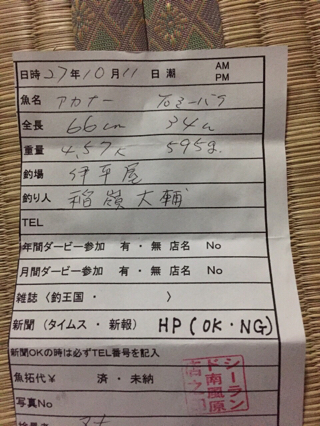 日時 27年10月11日 潮 AM PM
魚名 アカナー
全長 66cm 34cm
重量 4,57K 595g.
釣場 伊平屋
釣り人 稲嶺大輔
TEL
年間ダービー参加 有・無 店名 No
月間ダービー参加 有・無 店名 No
雑誌(釣王国・ )
新聞(タイムス・新報) HP(OK・NG)
新聞OKの時は必ずTEL番号を記入
魚拓代¥ 済・未納
シーランド南風原
写真No